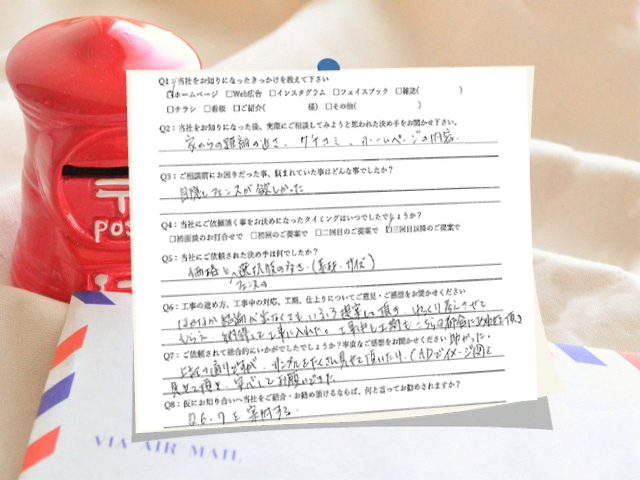 Q1:当社をお知りになったきっかけを教えて下さい
☑ホームページ □Web広告 □インスタグラム □フェイスブック □雑誌( )
□チラシ □看板 □ご紹介( 様) □その他( )
Q2:当社をお知りになった後、実際にご相談してみようと思われた決め手をお聞かせ下さい。
家からの距離の近さ、クチコミ、ホームページの内容。
Q3:ご相談前にお困りだった事、悩まれていた事はどんな事でしたか?
目隠しフェンスが欲しかった
Q4:当社にご依頼頂く事をお決めになったタイミングはいつでしたでしょうか?
□初面談のお打合せで □初回のご提案で □二回目のご提案で ☑三回目以降のご提案で
Q5:当社にご依頼された決め手は何でしたか?
価格と、選択肢の多さ
フェンスの
Q6:工事の進め方、工事中の対応、工期、仕上りについてご意見・ご感想をお聞かせください
なかなか結論が出なくてもいろいろ提案して頂き ゆっくり考えさせて
もらえ 納得して工事に入れた。工事中も
助かった。
Q7:ご依頼されて総合的にいかがでしたでしょうか?率直なご感想をお聞かせください
上記の通りですが、サンプルをたくさん見せて頂いたり、CADでイメージ図を
見せて頂き、安心してお願いできた
Q8:仮にお知り合いへ当社をご紹介・お勧め頂けるならば、何と言ってお勧めされますか?
Q6.7を
POS
VIA AIR MAIL